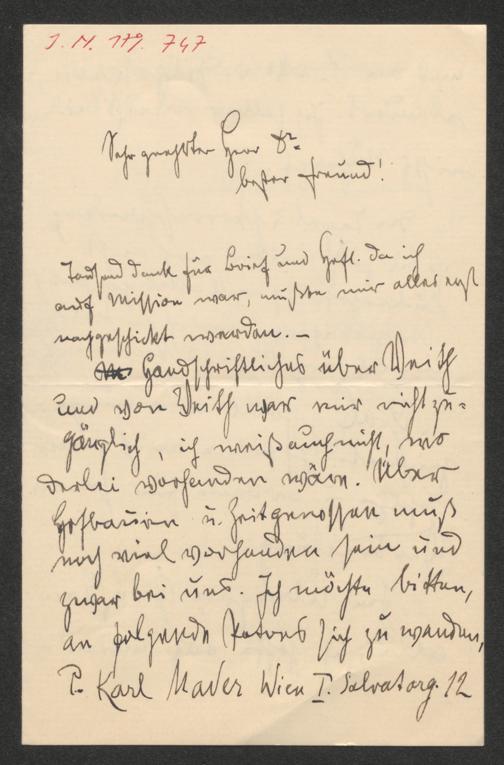 J. N. 179.747
Sehr geehrter Herr Dr.
bester Freund!
Tausend Dank für Brief und Heft. Da ich
auf Mission war, mußte mir alles erst
nachgeschickt werden. –
Handschriftliches über Veith
und von Veith war mir nicht zu-
gänglich, ich weiß auch nicht, wo
derlei vorhanden wäre. Über
Hofbauern u. Zeitgenossen muß
noch viel vorhanden sein und
zwar bei uns. Ich möchte bitten,
an folgende Patres sich zu wenden,
P. Karl Mader Wien I. Salvatorg. 12